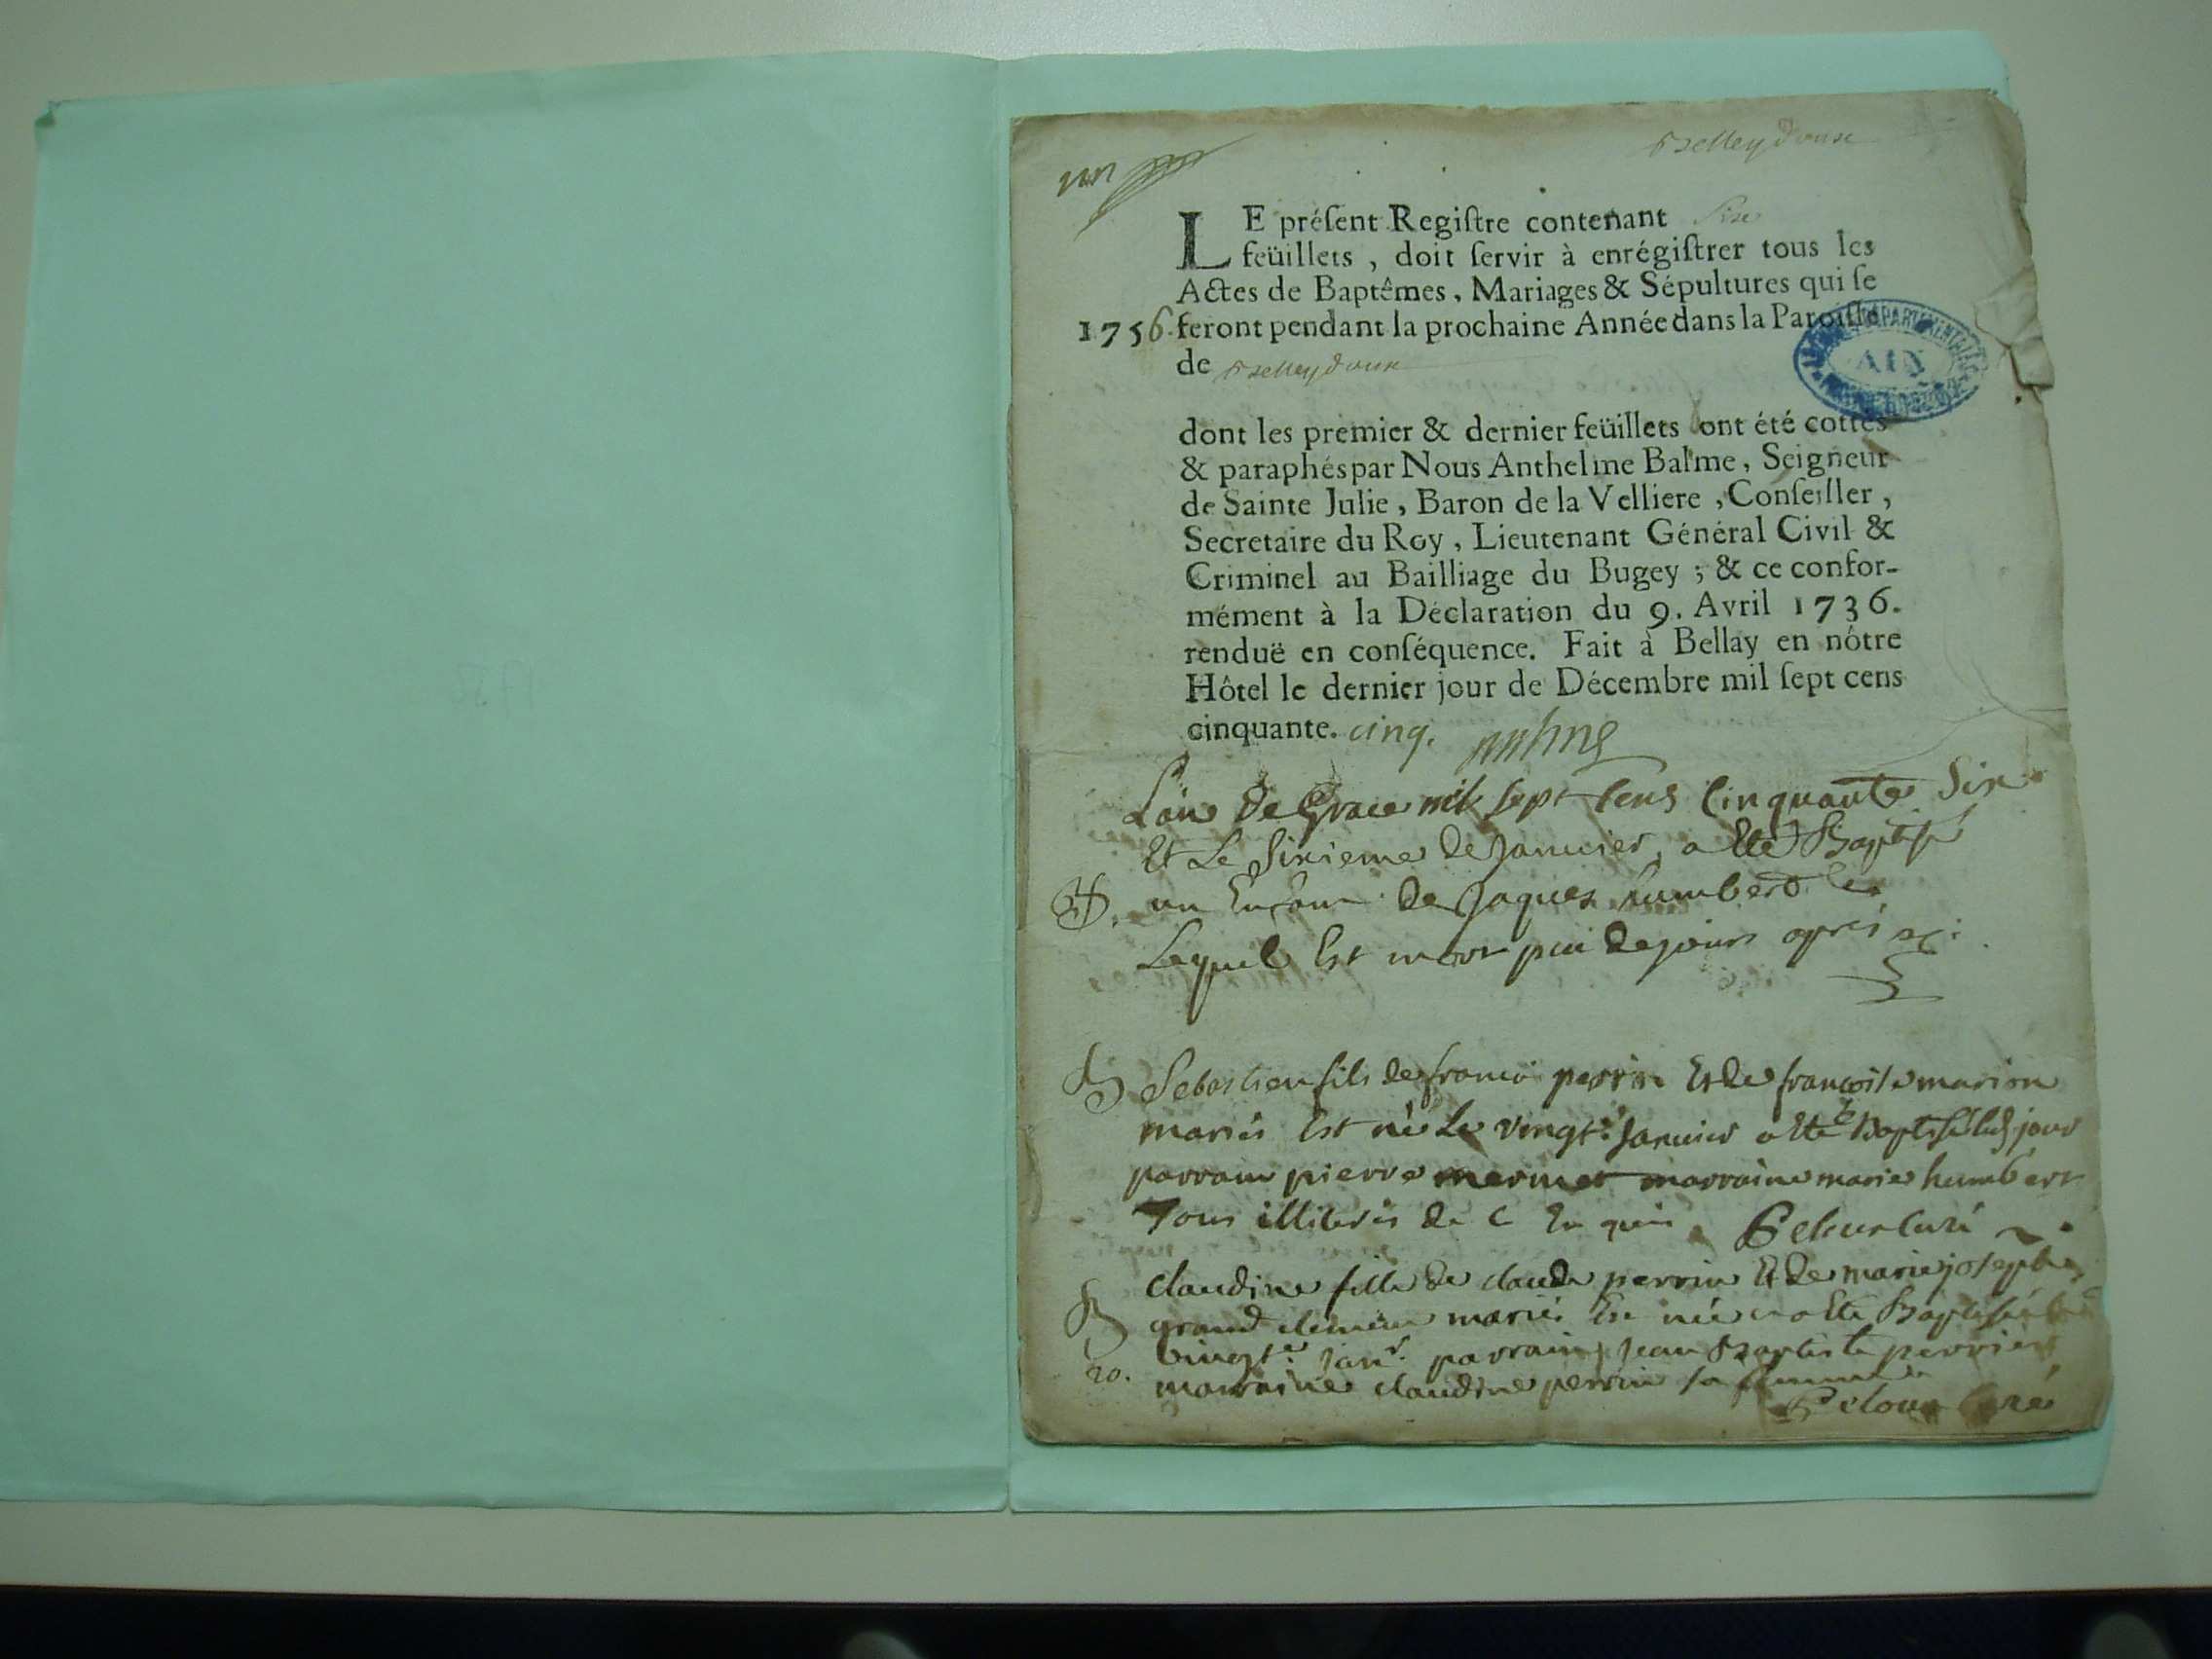 Belleydoux
LE préſent Regiſtre contenant Six
feüillets, doit ſervir à enrégiſtrer tous les
Actes de Baptêmes, Mariages & Sépultures qui ſe
1756. feront pendant la prochaine Année dans la Paroiſſe
de Belleydoux
AIN
dont les premier & dernier feüillets ont été cottés
& paraphés par Nous Anthelme Balme, Seigneur
de Sainte Julie, Baron de la Velliere, Conſeiller,
Secretaire du Roy, Lieutenant Général Civil &
Criminel au Bailliage du Bugey; & ce confor-
mément à la Déclaration du 9. Avril 1736.
renduë en conſéquence. Fait à Bellay en nôtre
Hôtel le dernier jour de Décembre mil ſept cens
cinquante. cinq.
L'an de Grace mil sept cens Cinquante Six
Et Le Sixieme de Janvier, a Eté Baptisé
un Enfant de Jaques humbert
Lequel Est mort peu de jours après
Sebastien fils de francois perrin Et de francoise marion
mariés Est né Le vingt Janvier a Eté Baptisé led jour
parrain pierre mermet marraine marie humbert
Tous illiterés de Enquis curé
claudine fille de claude perrin Et de marie josephe
grand clement mariés Est née a Eté Baptisée
vingte. janr. parrain jean Baptiste perrier
20. marraine claudine perrin sa femme
curé